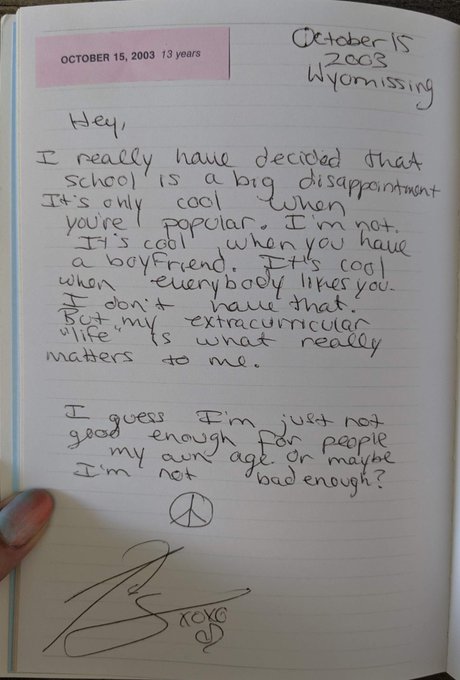 OCTOBER 15, 2003 13 years
October 15
2003
Wyomissing
Hey,
I really have decided that
school is a big disappointment
It's only cool when
you're popular. I'm not.
It's cool when you have
a boyfriend. It's cool
when everybody likes you.
I don't have that.
But my extracurricular
"life" is what really
matters to me.
I guess I'm just not
good enough for people
my own age. Or maybe
I'm not bad enough?
xoxo